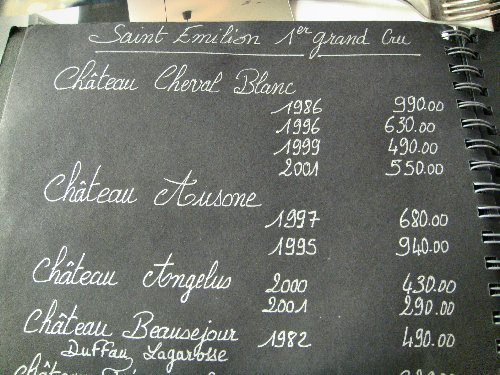 Saint Emilion 1er grand Cru
Château Cheval Blanc
1986 990.00
1996 630.00
1999 490.00
2001 550.00
Château Ausone
1997 680.00
1995 940.00
Château Angelus 2000 430.00
2001 290.00
Château Beausejour 1982 490.00
Duffau Lagarosse
Château